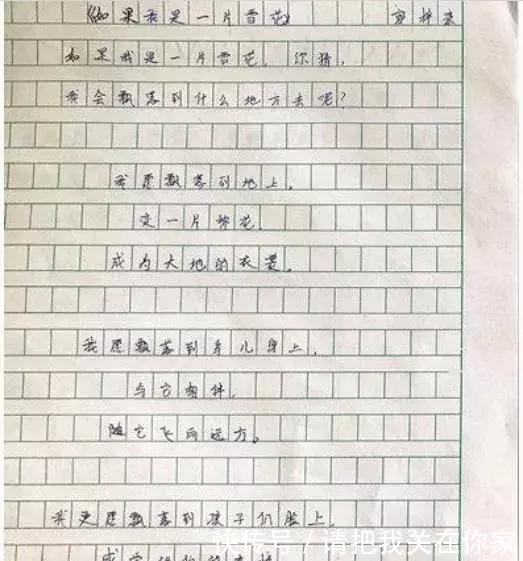 《如果我是一片雪花》
如果我是一片雪花,你猜,
我会飘落到什么地方去呢?
我愿飘落到地上,
变一片棉花,
成为大地的衣裳。
我愿飘落到鸟儿身上,
与它相伴,
随它飞向远方。
我更愿飘落到孩子们脸上,
快传号/请把我关在你家